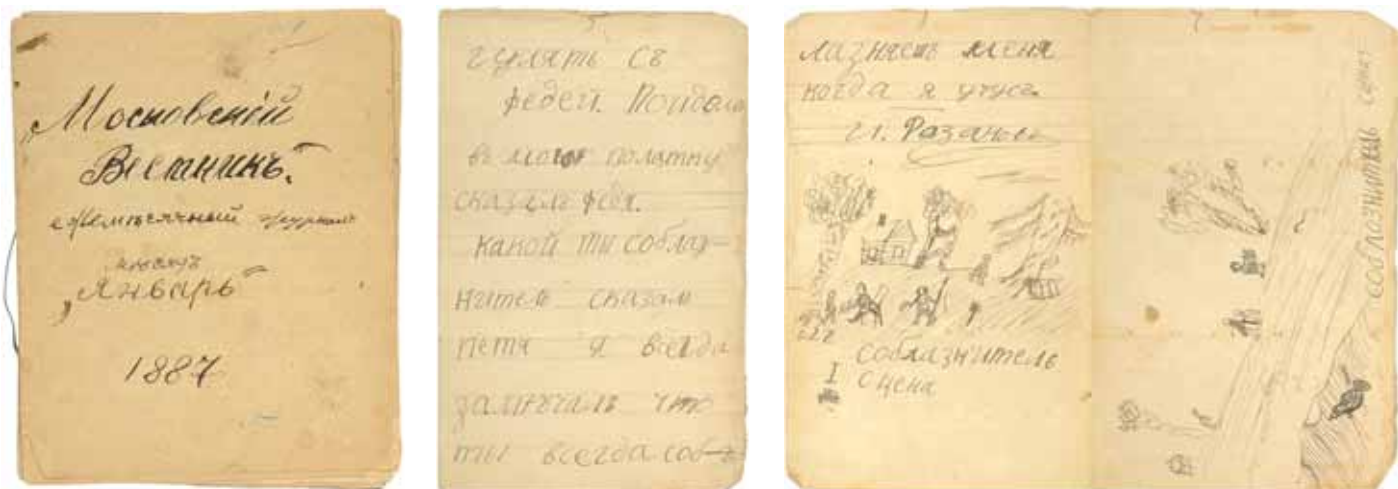 „Московскій
Вестникъ“
ежемѣсячный журналъ
„Январь“
1887
гулять съ
федей. Пойдемъ
въ мою полатку
сказалъ федя.
какой ты соблаз-
нитель сказалъ
петя я всегда
замѣчалъ что
ты всегда соб-
лазняешь меня
когда я учусь.
соблазнитель
I
сцена
соблазнитель сцена